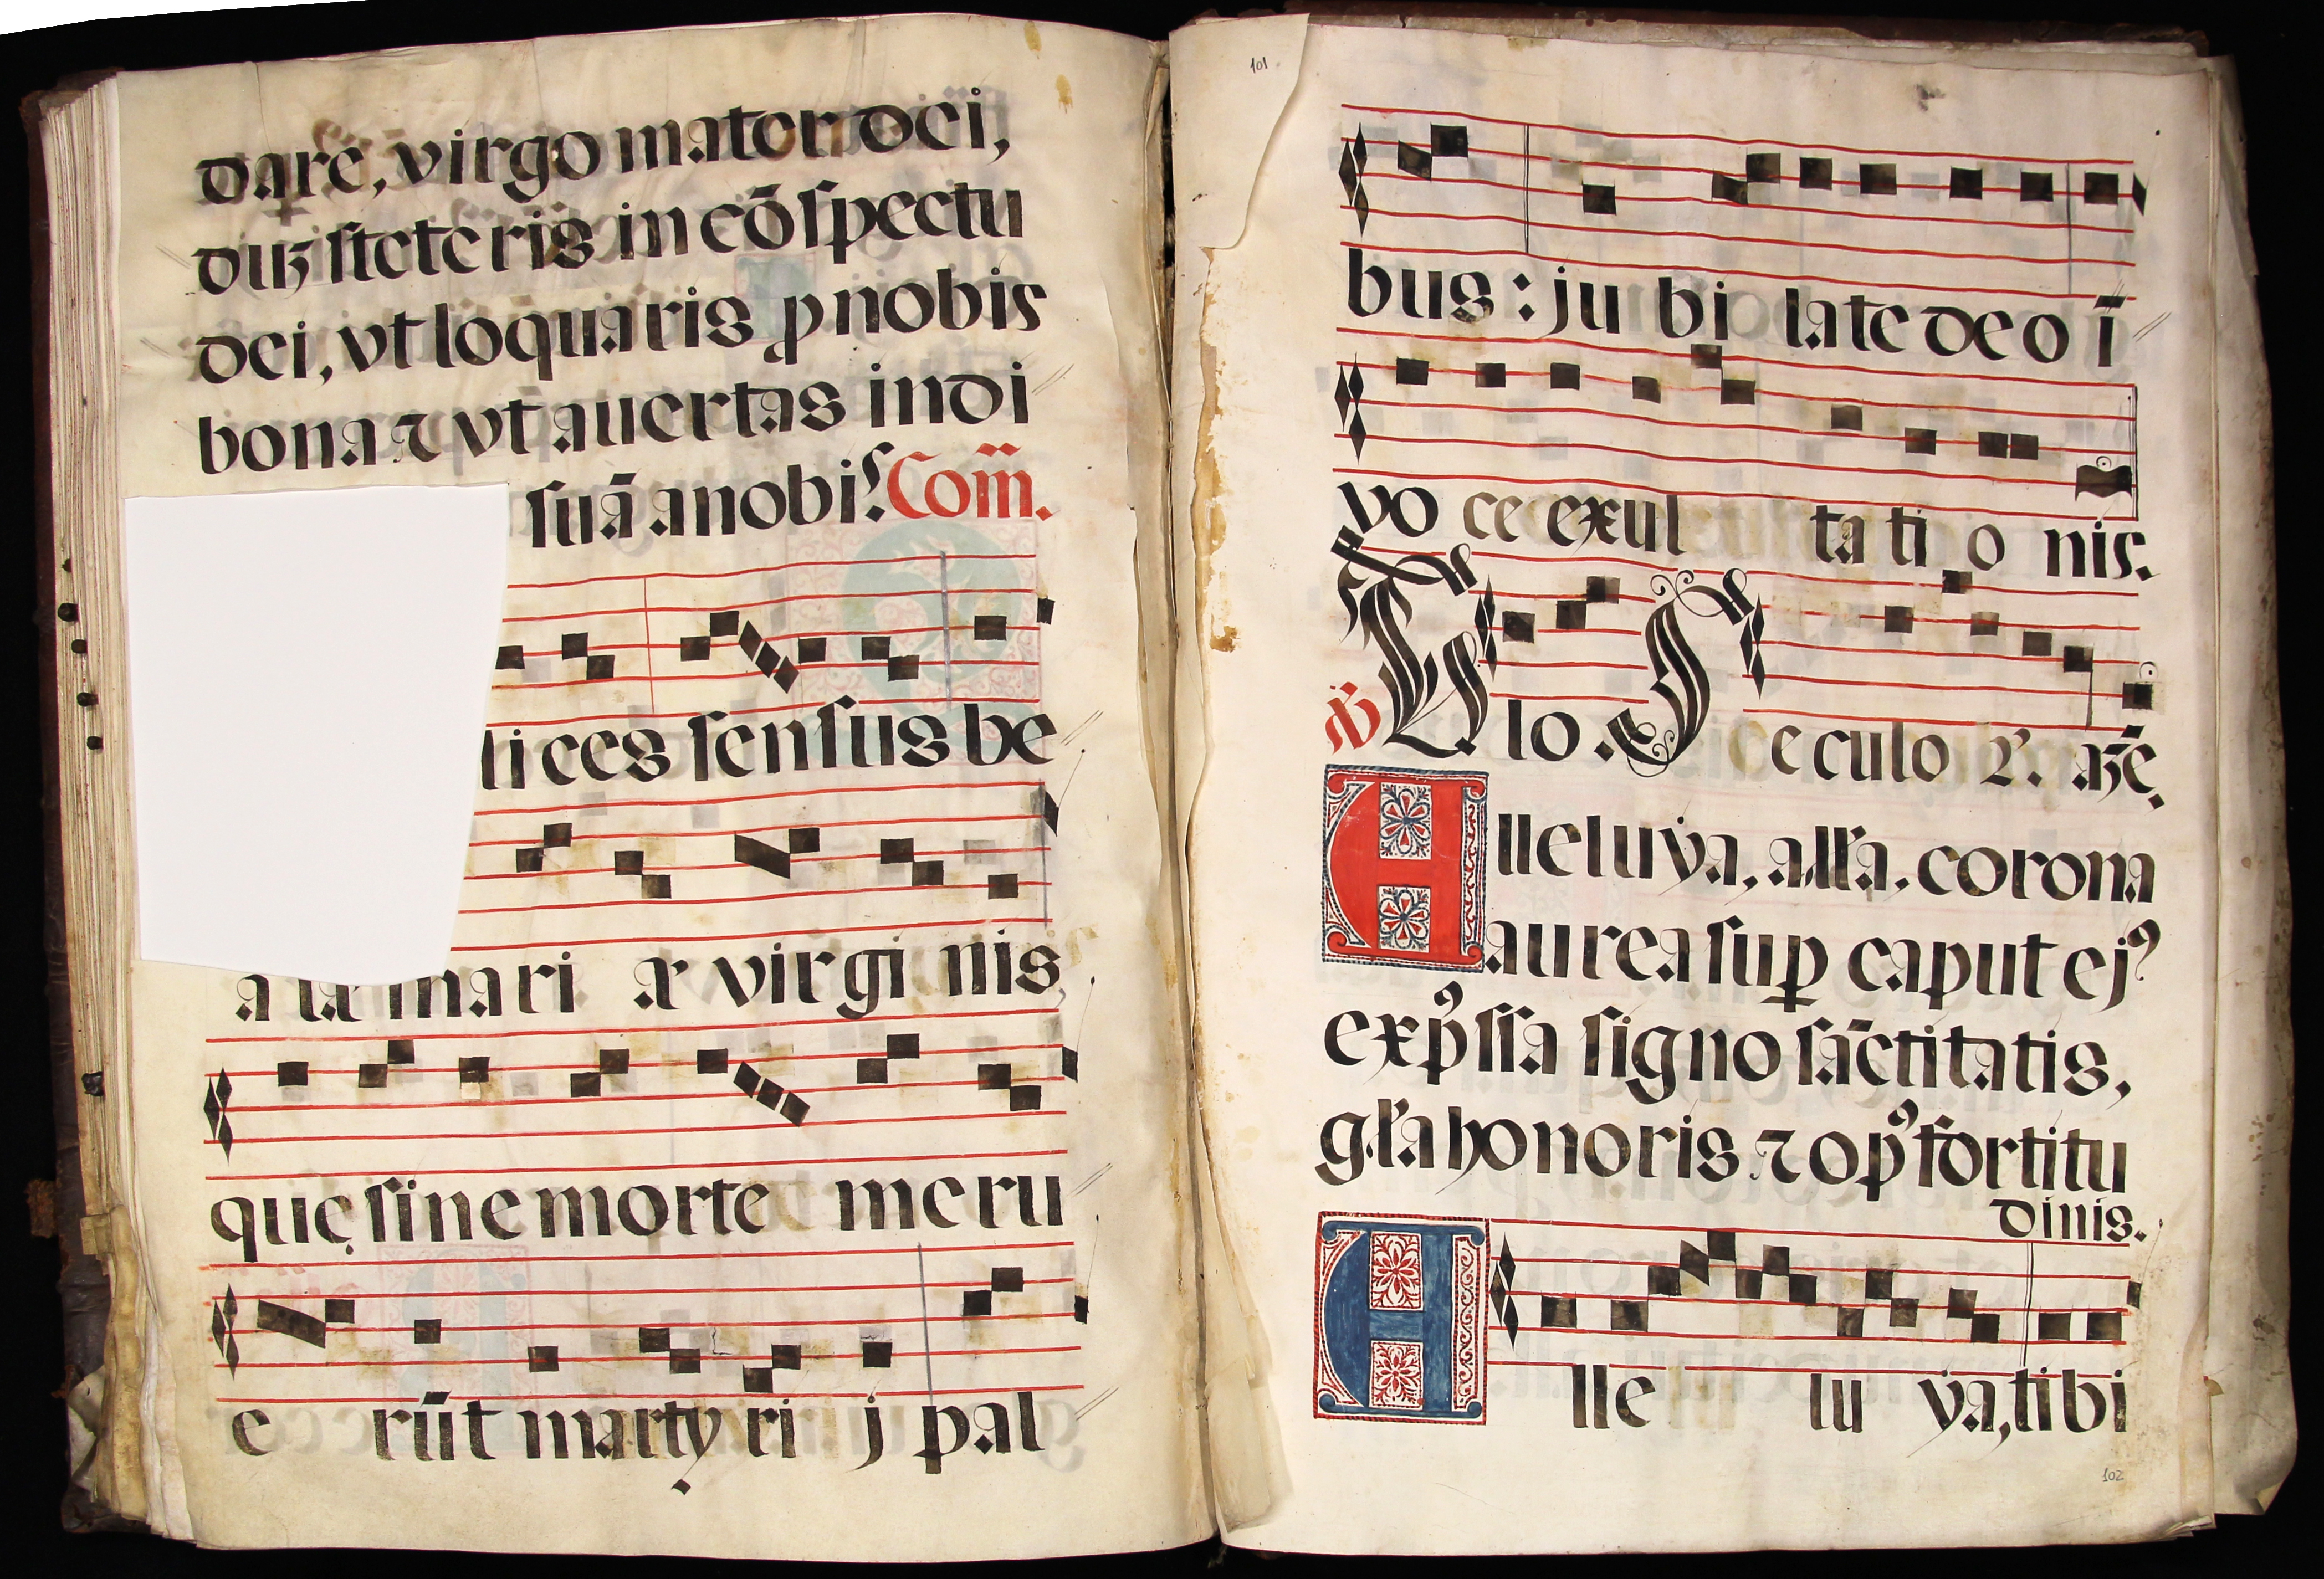 dare, virgo mater dei,
duʒ steteris in cōspectu
dei, vt loquaris ꝓ nobis
bona ⁊ vt auertas indi
suā a nobis. Com̄.
li ces sensus be
a tæ mari æ virgi nis,
quę sine morte meru
e rūt martyri j pal
101
bus: ju bi late deo ī
vo ce exul ta ti o nis.
lo. S e culo ꝝ. amē.
Alleluẏa, all'a. corona
aurea sup̱ caput ejꝰ
exp̓ssa signo sāctitatis,
gl'a honoris ⁊ op̓ fortitu
dinis.
Alle lu ẏa, ti bi
102